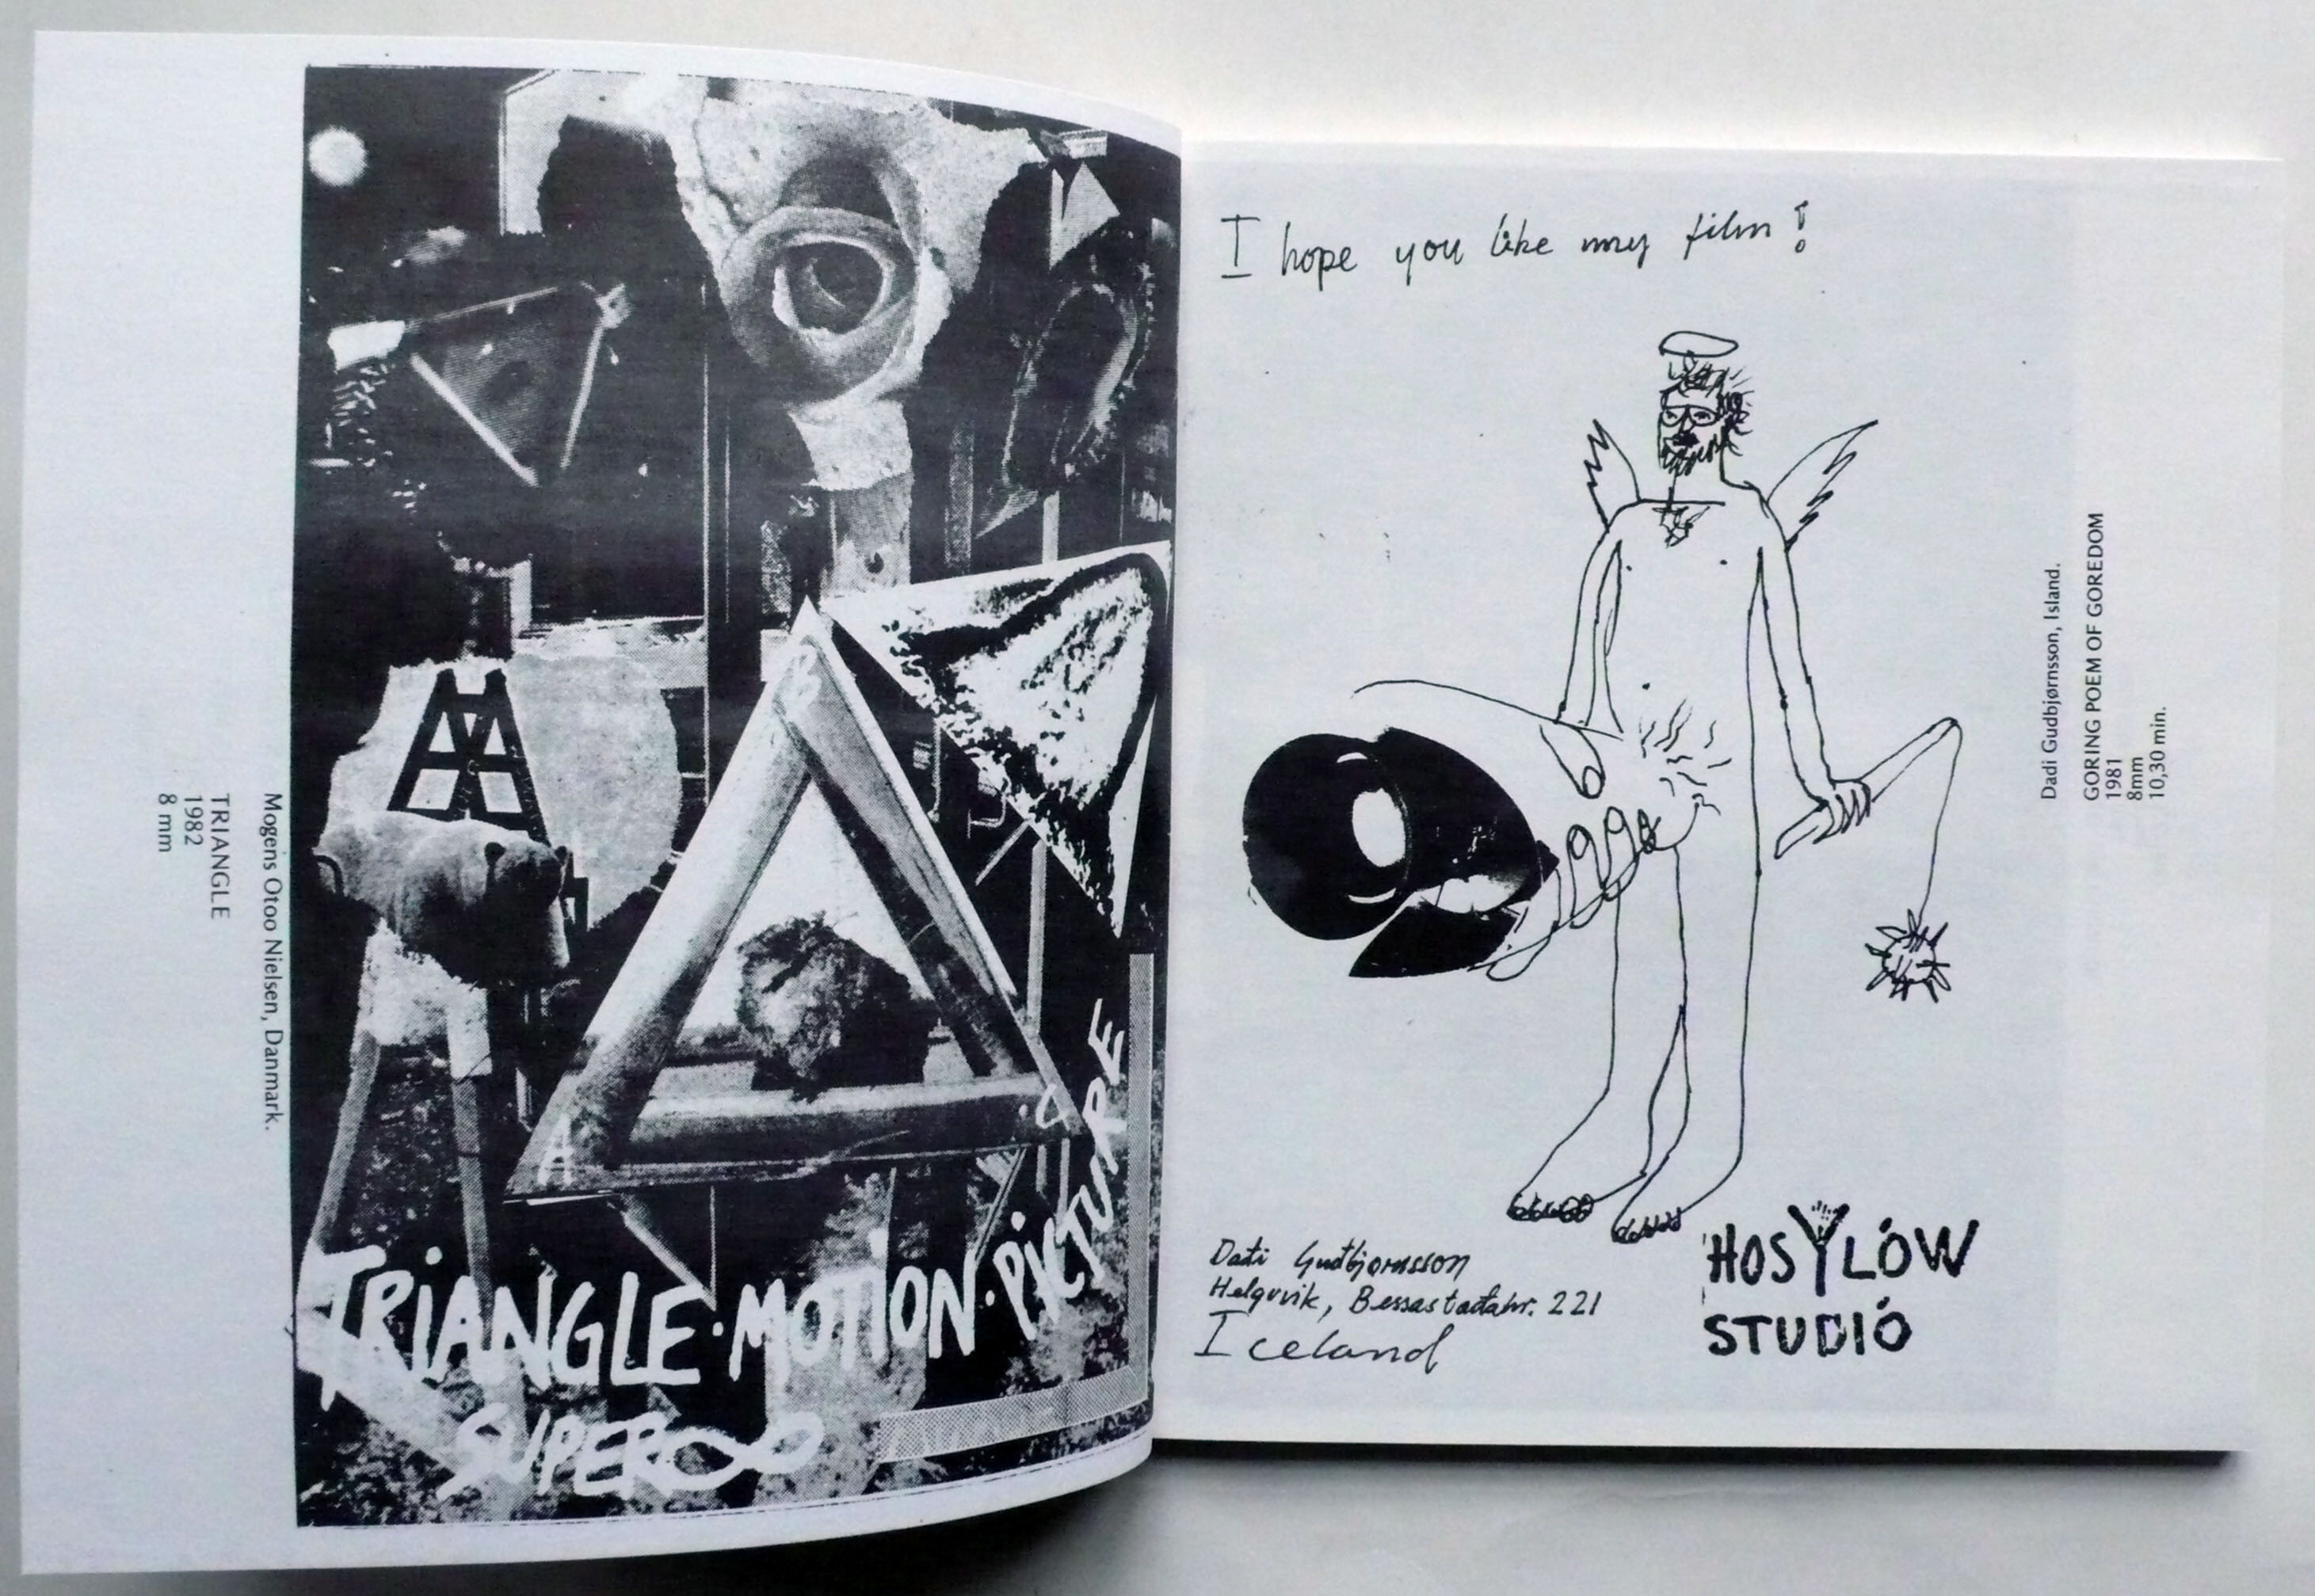 Mogens Otoo Nielsen, Danmark.
TRIANGLE
1982
8 mm
B
A
C
TRiANGLE·MOTION·PiCTURE
SUPER
I hope you like my film!
Dadi Gudbjørnsson, Island.
GORING POEM OF GOREDOM
1981
8mm
10,30 min.
Daði Guðbjörnsson
Helguvik, Bessastaðahr. 221
Iceland
HOSYLÓW
STUDIÓ